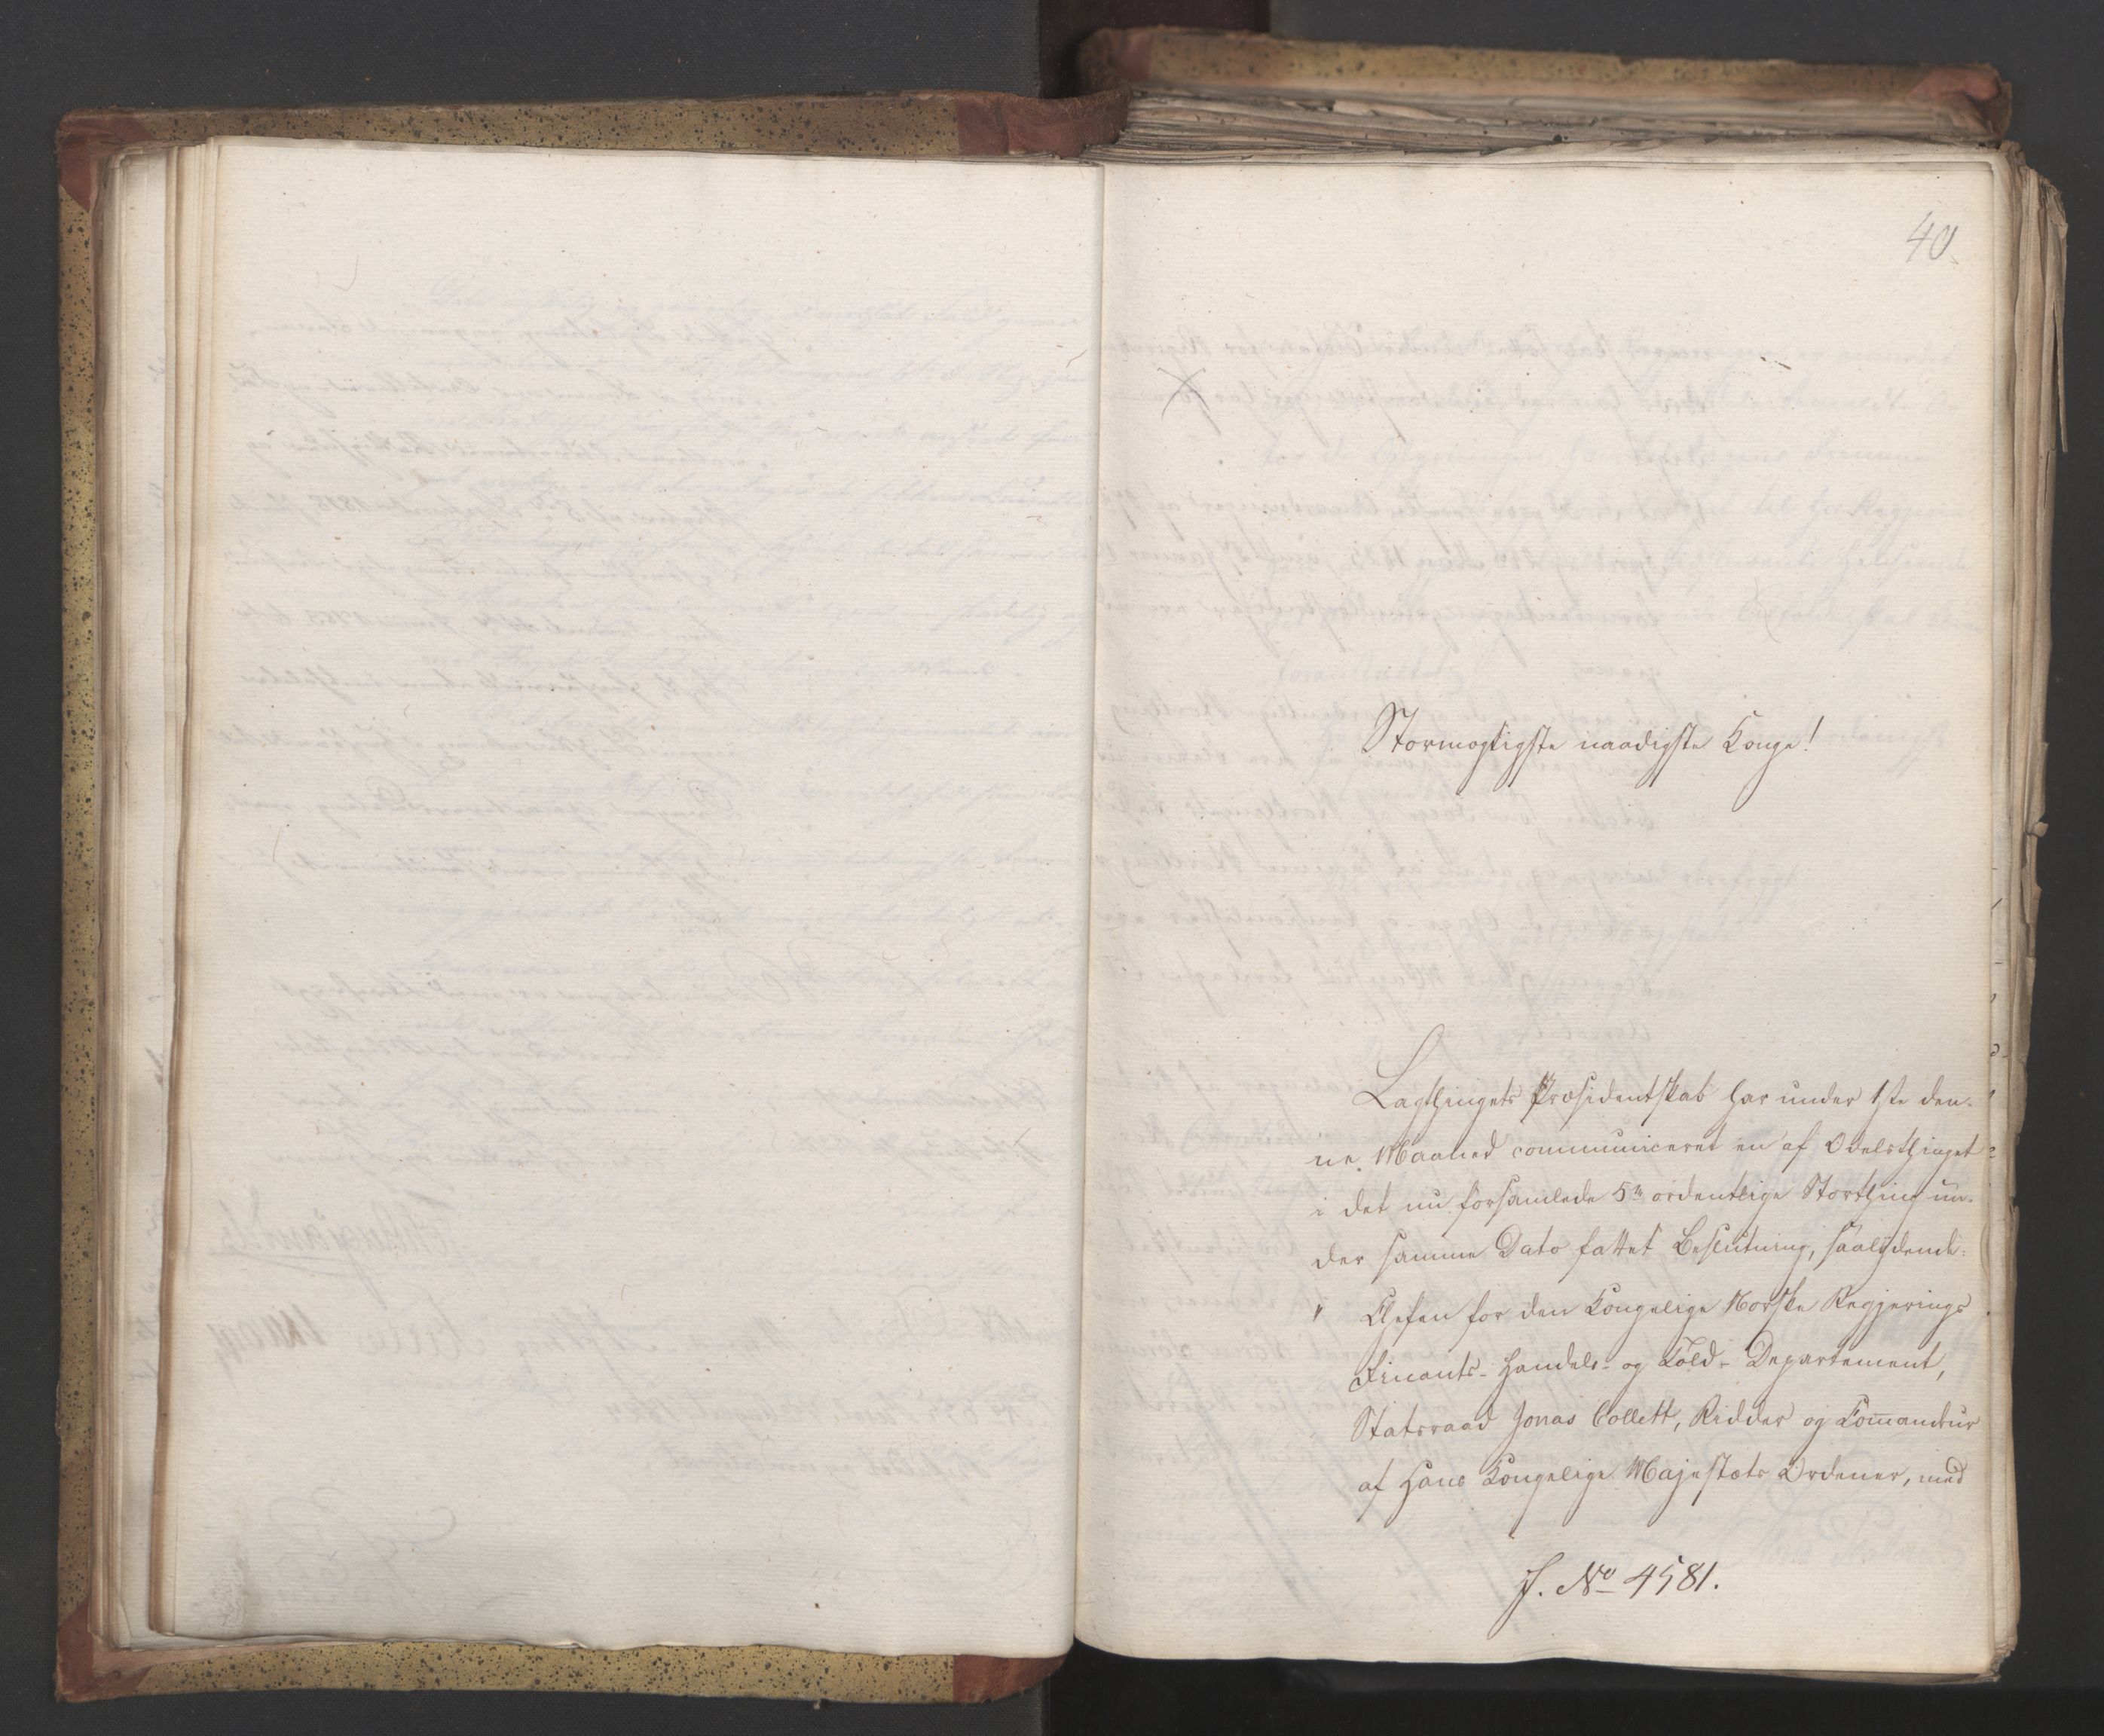 40
Stormægtigste naadigste Konge!
Lagthingets Præsidentskab har under 1ste den-
ne Maaned communiceret en af Odelsthinget
i det nu forsamlede 5te ordentlige Storthing un-
der samme Dato fattet Beslutning, saalydende:
" Chefen for den Kongelige Norske Regjerings
Finants- Handels- og Told- Departement,
Statsraad Jonas Collett, Ridder og Com̄andeur
af Hans Kongelige Majestæts Ordener, med
J. No 4581.